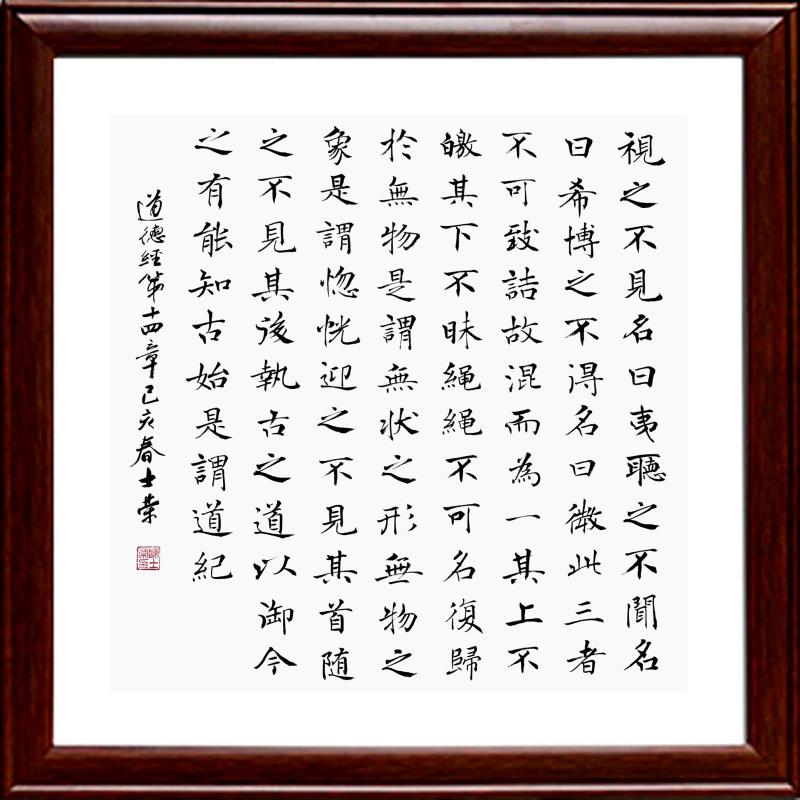 視之不見名曰夷聽之不聞名
曰希博之不得名曰微此三者
不可致詰故混而為一其上不
皦其下不昧繩繩不可名復歸
於無物是謂無状之形無物之
象是謂惚恍迎之不見其首随
之不見其後執古之道以御今
之有能知古始是謂道紀
道德經第十四章己亥春士荣